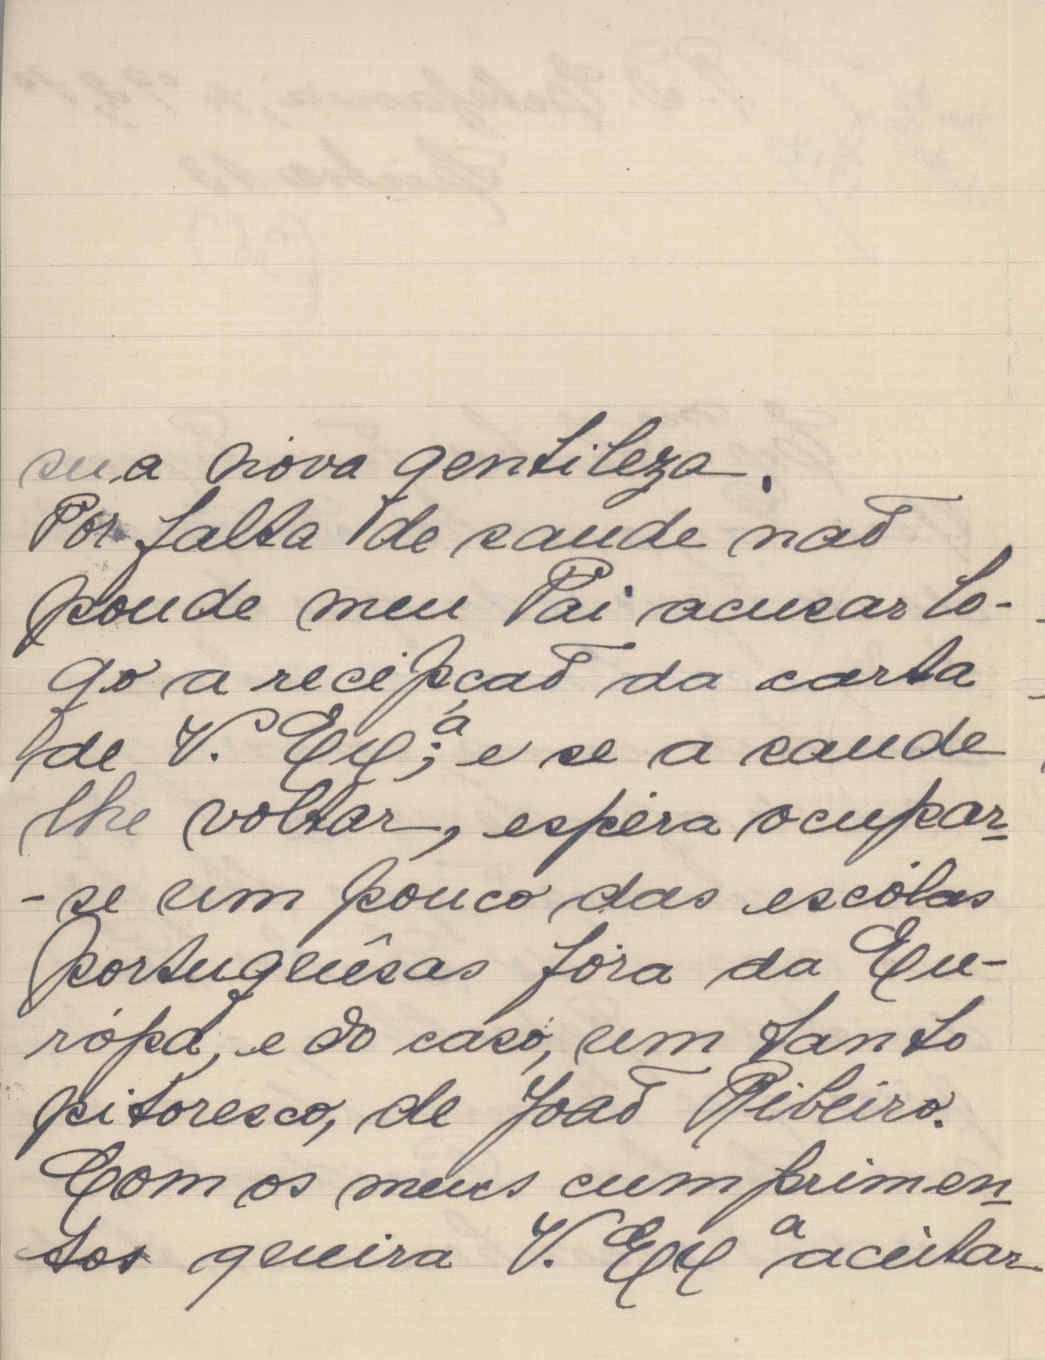 sua nova gentileza.
Por falta de saude naõ
poude meu Pai acusar lo-
go a recépçaõ da carta
de V. Exª; e se a saude
lhe voltar, espéra ocupar-
-se um pouco das escólas
portuguêsas fóra da Eu-
rópa, e do caso, um tanto
pitoresco, de Joaõ Ribeiro.
Com os meus cumprimen-
tos queira V. Exª aceitar